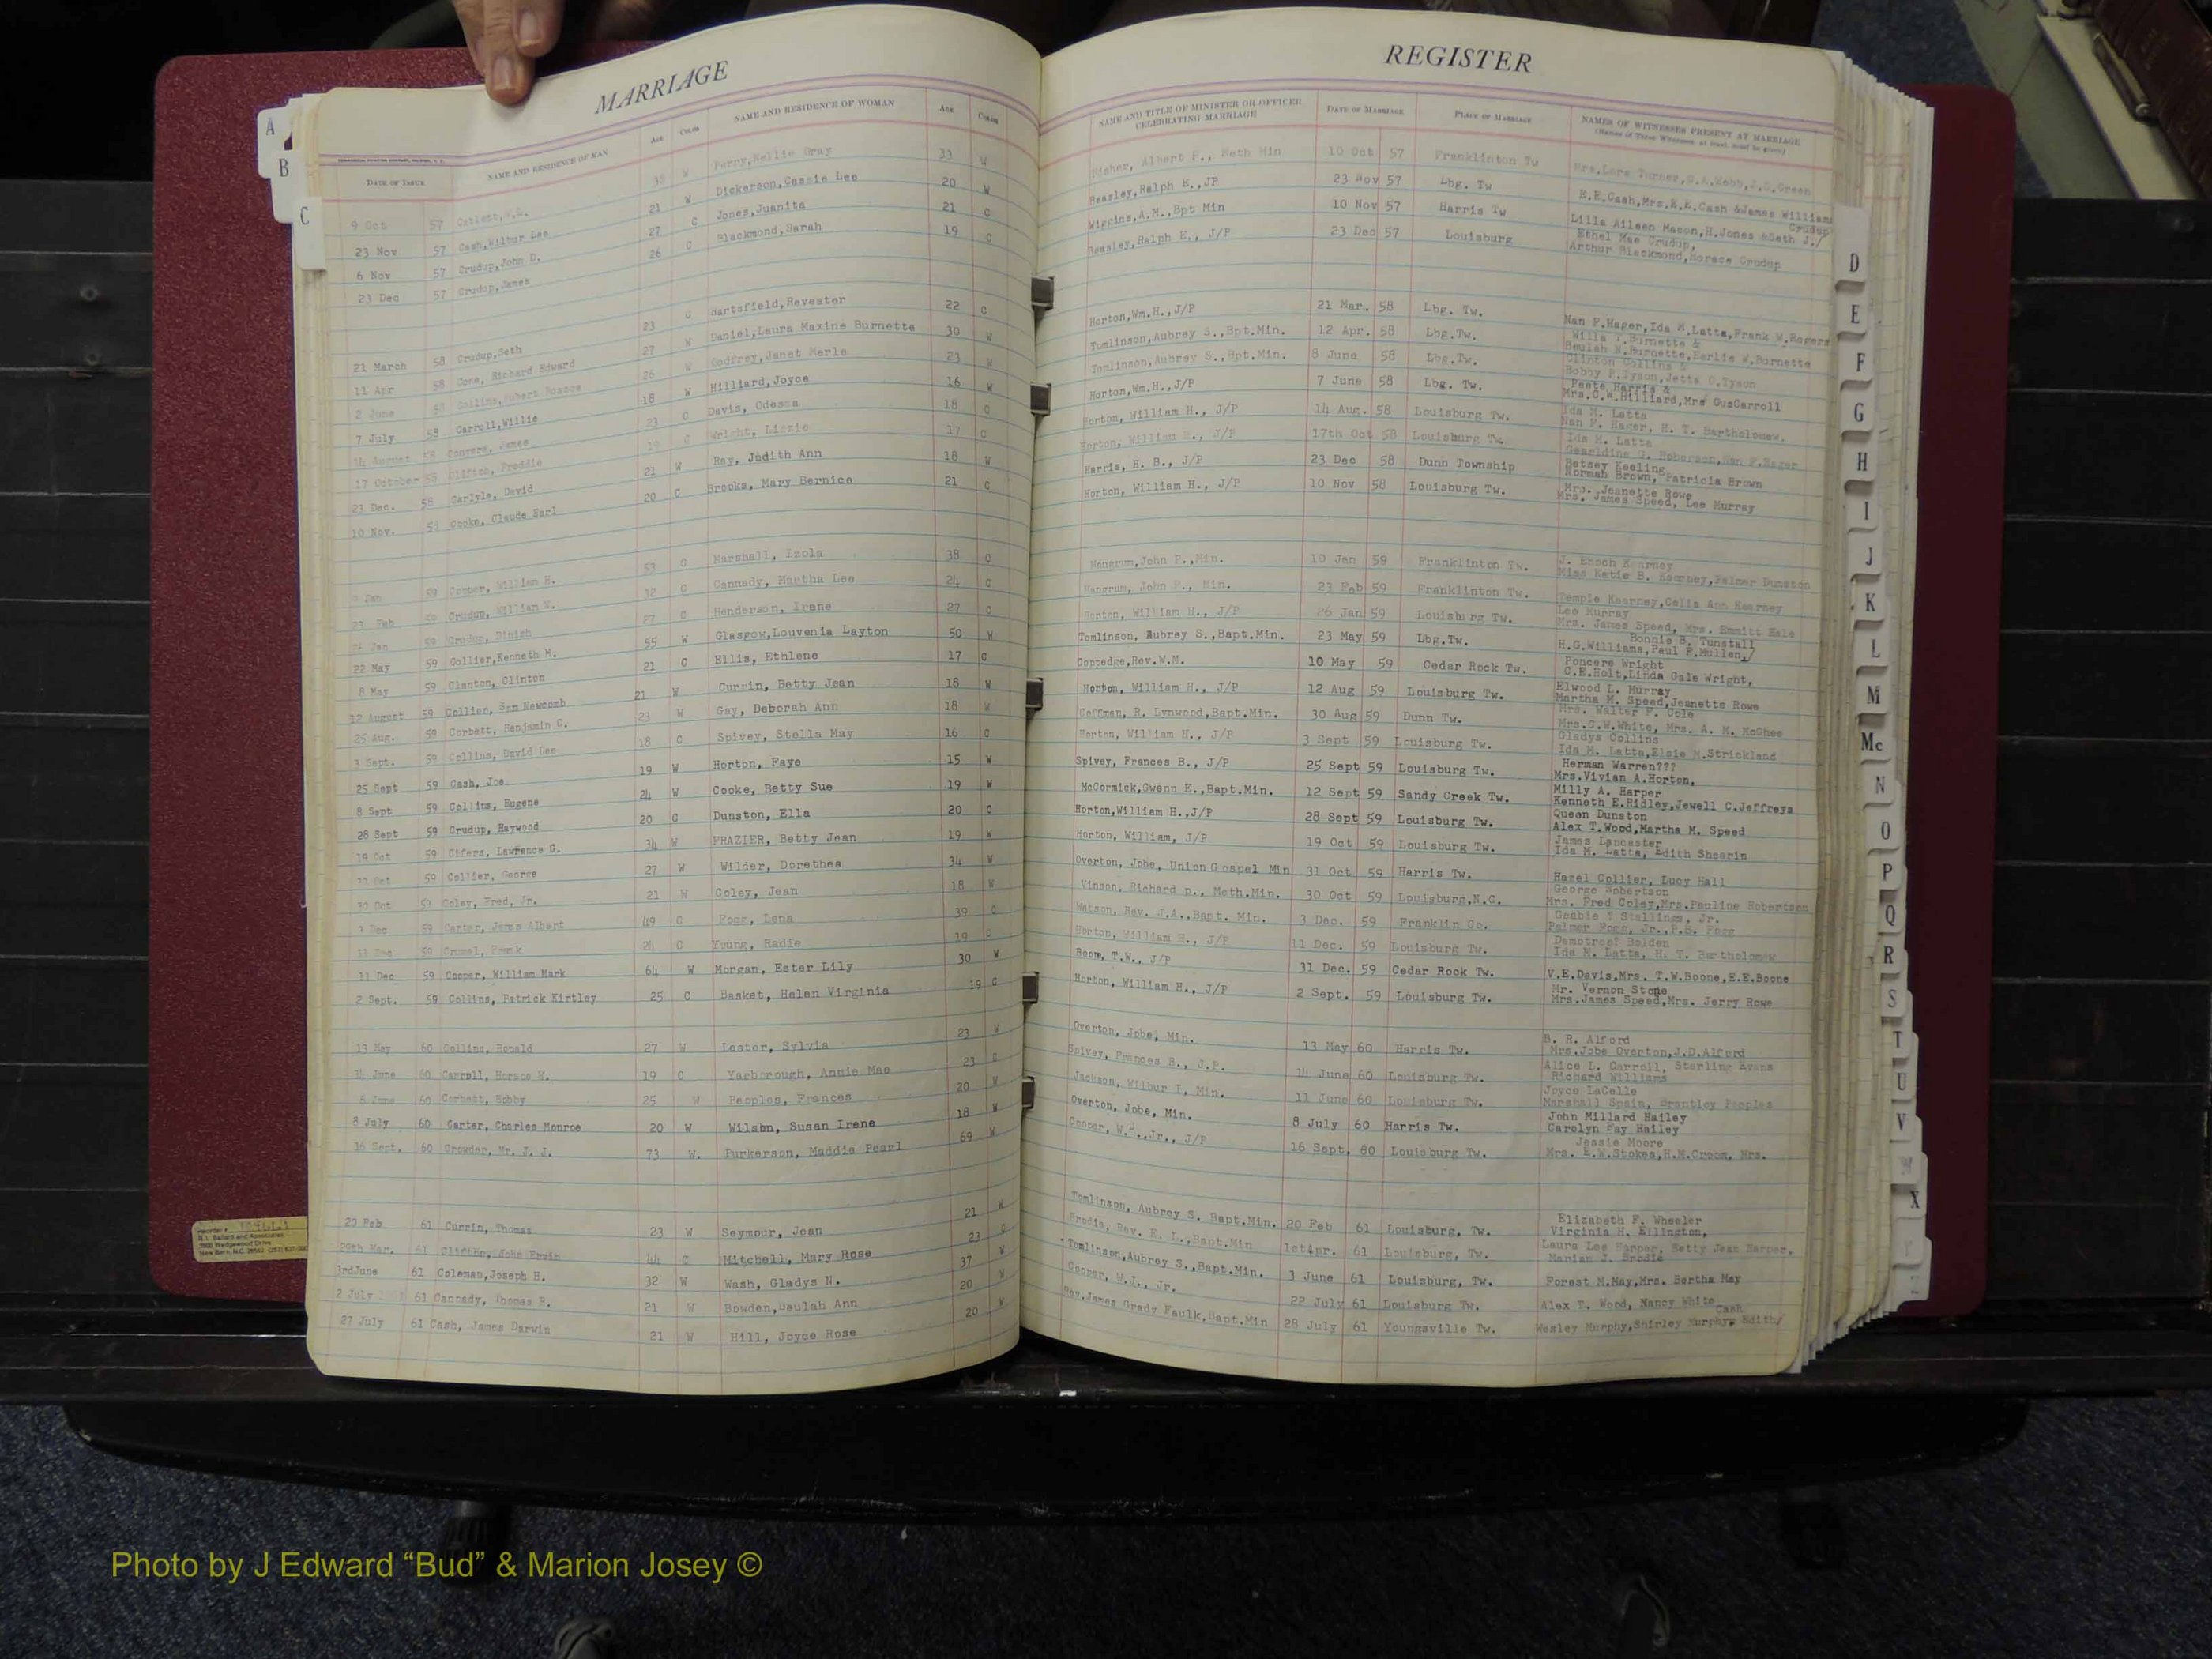 MARRIAGE
REGISTER
DATE OF ISSUE NAME AND RESIDENCE OF MAN AGE COLOR NAME AND RESIDENCE OF WOMAN AGE COLOR NAME AND TITLE OF MINISTER OR OFFICER CELEBRATING MARRIAGE DATE OF MARRIAGE PLACE OF MARRIAGE NAMES OF WITNESSES PRESENT AT MARRIAGE
(Names of Three Witnesses, at least, must be given)
9 Oct 57 W Gray 33 W Albert F., Meth Min 10 Oct 57 Franklinton Tw Mrs,Lara Turner
23 Nov 57 Cash,Wilbur Lee 21 W Dickerson,Cassie Lee 20 W Beasley,Ralph E.,JP 23 Nov 57 Lbg. Tw E.E.Cash,Mrs.E.E.Cash &James Williams
6 Nov 57 Crudup,John D. 27 C Jones,Juanita 21 C Wiggins,A.M.,Bpt Min 10 Nov 57 Harris Tw Lilla Aileen Macon,H.Jones &Seth J./ Crudup
23 Dec 57 Crudup,James 26 C Blackmond,Sarah 19 C Beasley,Ralph E., J/P 23 Dec 57 Louisburg Ethel Mae Crudup,
Arthur Blackmond,Horace Crudup
21 March 58 Crudup,Seth 23 C Hartsfield,Revester 22 C Horton,Wm.H.,J/P 21 Mar. 58 Lbg. Tw. Nan F.Hager,Ida M.Latta,Frank W.Rogers
11 Apr 58 Cone, Richard Edward 27 W Daniel,Laura Maxine Burnette 30 W Tomlinson,Aubrey S.,Bpt.Min. 12 Apr. 58 Lbg.Tw. Willa T.Burnette &
Beulah N.Burnette,Earlie W.Burnette
2 June 58 Collins,Hubert Roscoe 26 W Godfrey,Janet Merle 23 W Tomlinson,Aubrey S.,Bpt.Min. 8 June 58 Lbg.Tw. Clinton Collins &
Bobby P.Tyson,Jetta O.Tyson
7 July 58 Carroll,Willie 18 W Hilliard,Joyce 16 W Horton,Wm.H.,J/P 7 June 58 Lbg. Tw. Harris &
Mrs.C.W.Hilliard,Mrs GusCarroll
14 August 58 Conyers, James 23 C Davis, Odessa 18 C Horton, William H., J/P 14 Aug. 58 Louisburg Tw. Ida M. Latta
Nan F. Hager, H. T. Bartholomew.
17 October 58 Clifton, Freddie 19 C Wright, Lizzie 17 C Horton, William H., J/P 17th Oct 58 Louisburg Tw. Ida M. Latta
Gearldine G. Roberson,Nan F.Hager
23 Dec. 58 Carlyle, David 21 W Ray, Judith Ann 18 W Harris, H. B., J/P 23 Dec 58 Dunn Township Betsey Keeling
Norman Brown, Patricia Brown
10 Nov. 58 Cooke, Claude Earl 20 C Brooks, Mary Bernice 21 C Horton, William H., J/P 10 Nov 58 Louisburg Tw. Mrs. Jeanette Rowe
Mrs. James Speed, Lee Murray
9 Jan 59 Cooper, William H. 53 C Marshall, Izola 38 C Mangrum,John P.,Min. 10 Jan 59 Franklinton Tw. J. Enoch Kearney
Miss Katie B. Kearney,Palmer Dunston
23 Feb 59 Crudup, William W. C Cannady, Martha Lee 24 C Mangrum, John P., Min. 23 Feb 59 Franklinton Tw. Temple Kearney,Celia Ann Kearney
59 Crudup, 27 C Henderson, Irene 27 C Horton, William H., J/P 26 Jan 59 Louisburg Tw. Lee Murray
Mrs. James Speed, Mrs. Emmitt Hale
22 May 59 Collier,Kenneth M. 55 W Glasgow,Louvenia Layton 50 W Tomlinson, Aubrey S.,Bapt.Min. 23 May 59 Lbg.Tw. Bonnie B. Tunstall
H.G.Williams,Paul P.Mullen,/
8 May 59 Clanton, Clinton 21 C Ellis, Ethlene 17 C Coppedge,Rev.W.M. 10 May 59 Cedar Rock Tw. Poncere Wright
C.E.Holt,Linda Gale Wright,
12 August 59 Collier, Sam Newcomb 21 W Currin, Betty Jean 18 W Horton, William H., J/P 12 Aug 59 Louisburg Tw. Elwood L. Murray
Martha M. Speed,Jeanette Rowe
25 Aug. 59 Corbett, Benjamin C. 23 W Gay, Deborah Ann 18 W Coffman, R. Lynwood,Bapt.Min. 30 Aug 59 Dunn Tw. Mrs. Walter F. Cole
Mrs.C.W.White, Mrs. A. M. McGhee
3 Sept. 59 Collins, David Lee 18 C Spivey, Stella May 16 C Horton, William H., J/P 3 Sept 59 Louisburg Tw. Gladys Collins
Ida M. Latta,Elsie M.Strickland
25 Sept 59 Cash, Joe 19 W Horton, Faye 15 W Spivey, Frances B., J/P 25 Sept 59 Louisburg Tw. Herman Warren???
Mrs.Vivian A.Horton,
8 Sept 59 Collins, Eugene 24 W Cooke, Betty Sue 19 W McCormick,Gwenn E.,Bapt.Min. 12 Sept 59 Sandy Creek Tw. Milly A. Harper
Kenneth E.Ridley,Jewell C.Jeffreys
28 Sept 59 Crudup, Haywood 20 C Dunston, Ella 20 C Horton,William H.,J/P 28 Sept 59 Louisburg Tw. Queen Dunston
Alex T.Wood,Martha M. Speed
19 Oct 59 Cifers, Lawrence G. 34 W FRAZIER, Betty Jean 19 W Horton, William, J/P 19 Oct 59 Louisburg Tw. James Lancaster
Ida M. Latta, Edith Shearin
59 Collier, George 27 W Wilder, Dorethea 34 W Overton, Jobe, Union Gospel Min 31 Oct 59 Harris Tw. Hazel Collier, Lucy Hall
30 Oct 59 Coley, Fred, Jr. 21 W Coley, Jean 18 W Vinson, Richard D., Meth.Min. 30 Oct 59 Louisburg,N.C. George Robertson
Mrs. Fred Coley,Mrs.Pauline Robertson
Dec 59 Carter, James Albert 49 C Fogg, Lena 39 C Watson, Rev. J.A.,Bapt. Min. 3 Dec. 59 Franklin Co. Stallings, Jr.
Palmer Fogg, Jr.,P.B. Fogg
11 Dec 59 Frank C Young, Radie 19 C Horton, William H., J/P 11 Dec. 59 Louisburg Tw. Bolden
Ida M. Latta, H. T. Bartholomew
11 Dec 59 Cooper, William Mark 64 W Morgan, Ester Lily 30 W Boom, T.W., J/P 31 Dec. 59 Cedar Rock Tw. V.E.Davis,Mrs. T.W.Boone,E.E.Boone
2 Sept. 59 Collins, Patrick Kirtley 25 C Basket, Helen Virginia 19 C Horton, William H., J/P 2 Sept. 59 Louisburg Tw. Mr. Vernon Stone
Mrs.James Speed,Mrs. Jerry Rowe
13 May 60 Collins, Ronald 27 W Lester, Sylvia 23 W Overton, Jobe, Min. 13 May 60 Harris Tw. B. R. Alford
Mrs.Jobe Overton,J.D.Alford
14 June 60 Carroll, Horace W. 19 C Yarborough, Annie Mae 23 C Spivey, Frances B., J.P. 14 June 60 Louisburg Tw. Alice L. Carroll, Sterling Evans
Richard Williams
6 June 60 Corbett, Bobby 25 W Peoples, Frances 20 W Jackson, Wilbur I, Min. 11 June 60 Louisburg Tw. Joyce LaCelle
Marshall Spain, Brantley Peoples
8 July 60 Carter, Charles Monroe 20 W Wilson, Susan Irene 18 W Overton, Jobe, Min. 8 July 60 Harris Tw. John Millard Hailey
Carolyn Fay Hailey
16 Sept. 60 Crowder, Mr. J. J. 73 W. Purkerson, Maddie Pearl 69 W Cooper, W.J.,Jr., J/P 16 Sept. 60 Louisburg Tw. Jessie Moore
Mrs. E.W.Stokes,H.M.Croom, Mrs.
20 Feb 61 Currin, Thomas 23 W Seymour, Jean 21 W Tomlinson, Aubrey S. Bapt.Min. 20 Feb 61 Louisburg, Tw. Elizabeth F. Wheeler
Virginia H. Ellington,
Mar. 61 Clifton, John Ervin 44 C Mitchell, Mary Rose 23 C Brodie, Rev. E. L.,Bapt.Min 1stApr. 61 Louisburg, Tw. Laura Lee Harper, Betty Jean Harper,
Marian J. Brodie
3rdJune 61 Coleman,Joseph H. 32 W Wash, Gladys N. 37 W Tomlinson,Aubrey S.,Bapt.Min. 3 June 61 Louisburg, Tw. Forest M.May,Mrs. Bertha May
2 July 61 Cannady, Thomas R. 21 W Bowden,Beulah Ann 20 W Cooper, W.J., Jr. 22 July 61 Louisburg Tw. Alex T. Wood, Nancy White
27 July 61 Cash, James Darwin 21 W Hill, Joyce Rose 20 W Rev.James Grady Faulk,Bapt.Min 28 July 61 Youngsville Tw. Wesley Murphy,Shirley Murphy, Edith/ Cash
A
B
C
D
E
F
G
H
I
J
K
L
M
Mc
N
O
P
Q
R
S
T
U
V
W
X
Y
Z
Photo by J Edward “Bud” & Marion Josey ©